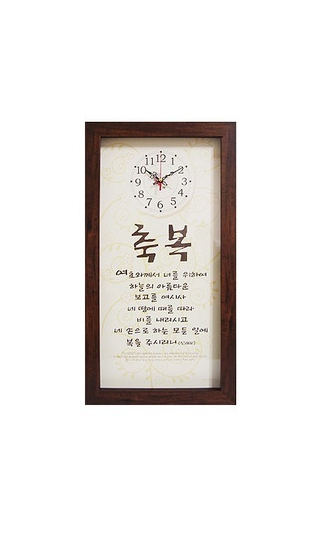 11 12 1
10 2
9 3
8 4
7 6 5
축복
여호와께서 너를 위하여
하늘의 아름다운
보고를 여시사
네 땅에 때를 따라
비를 내리시고
네 손으로 하는 모든 일에
복을 주시리니